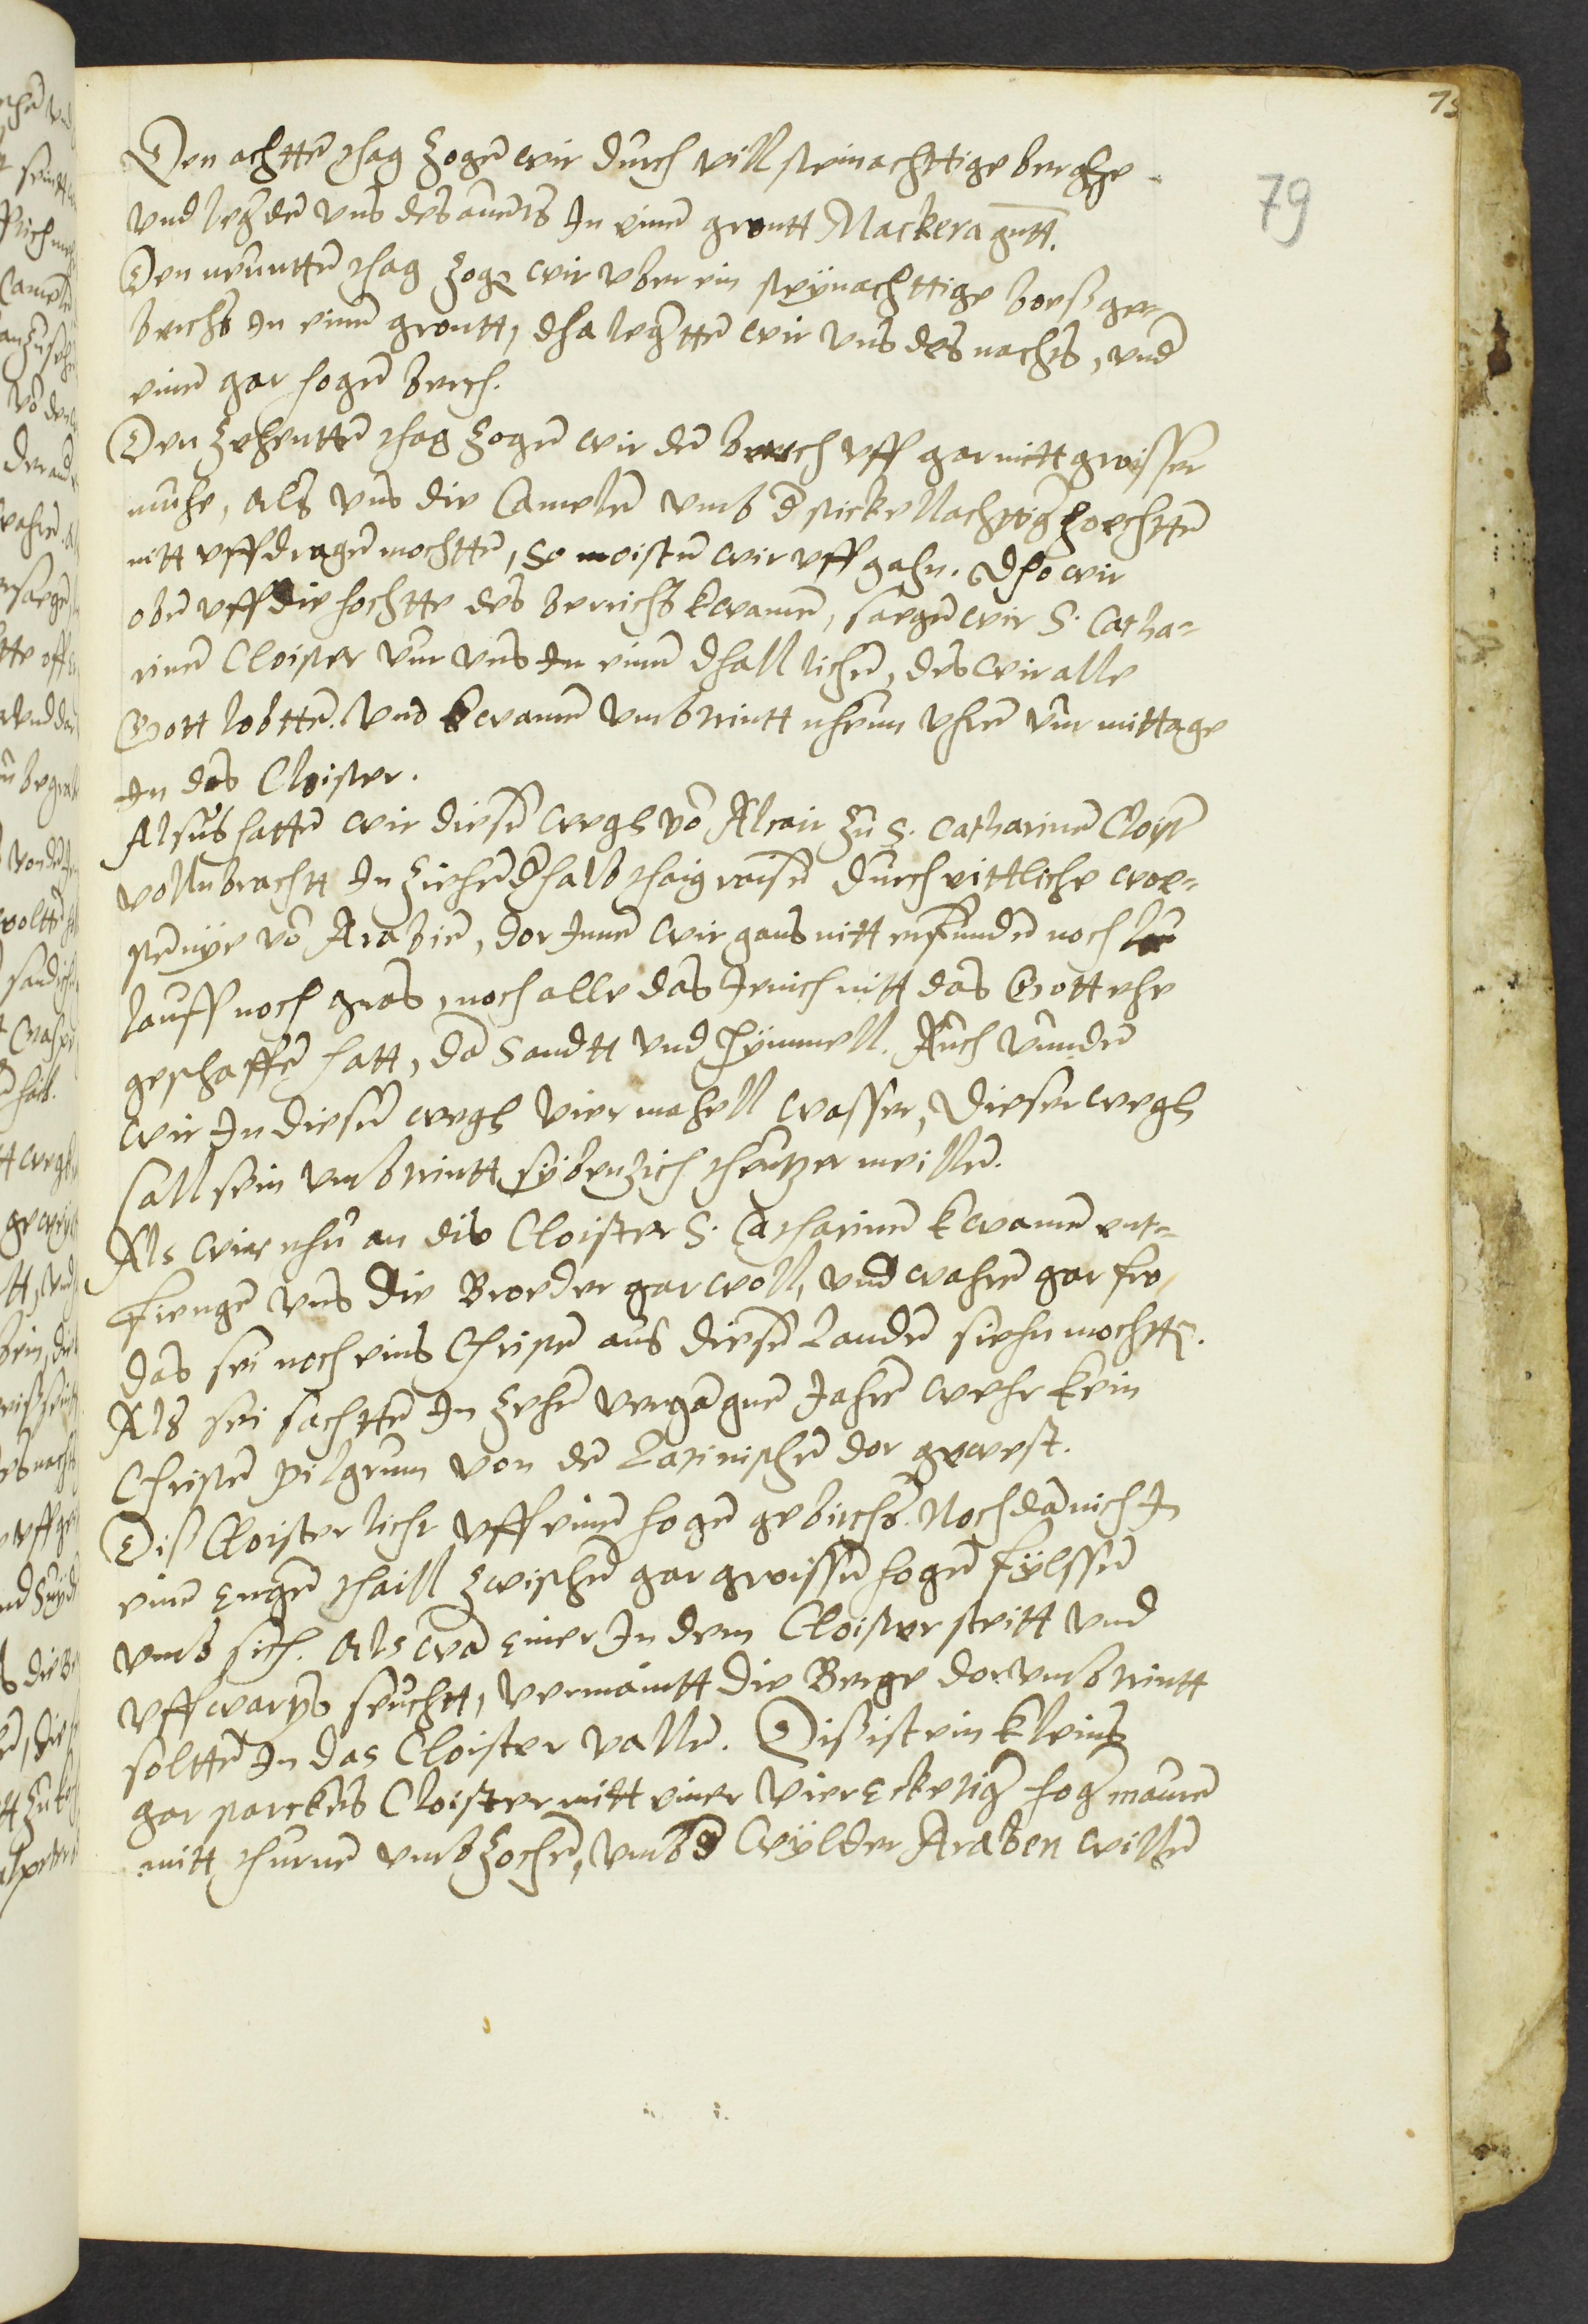 79
Den achtten thag zogen wir durch vill steinachttige berghe
vnd legden vns des auents In einen grontt Mackera gntt.
Den neuntten thag zogen wir vber ein steynachttige boeß ger
berchs In einen grontt, dha legtten wir vns des nachts, vnd
einen gar hogen berch.
Den zehentten thag zogen wir den berch vff gar mitt groisser
muhe, als vns die Camelen vmb d stickellachttig hoechtten
nitt vffdragen mochtten, so moisten wir vff gahn. Dho wir
oben vff die hochtte des berrichs kwamen, saegen wir S. Catha=
rinen Cloister vur vns In einen dhall lichen, des wir alle
Gott lobtten. Vnd kwamen vmbtrintt nheun vhren vur mittage
In das Cloister.
Alsus hatten wir diesen wegh von Alcair zu S. Catharinen Cloist
vollnbrachtt In ziehendhalb thaig raisen durch eittliche woe=
stenye von Arabien, dar Innen wir gans nitt enfunden noch
lauff noch gras, noch alle das Jenich nitt das Gott ehe
geschaffen hatt, dan Sandtt vnd hymmell. Auch vunden
wir In diesen wegh vier mahell wasser, Dieser wegh
sall sein vmbtrintt sybenzich theutzer meillen.
Als wir nhu an die Cloister S. Catharinen kwamen ent=
fiengen vns die Broeder gar woll, vnd wahren gar fro
das sei noch eins Christen aus diesen Landen siehn mochtten.
Als sei sachtten In zehen vergangnen Jahren wehr kein
Christen pilgrum von den Latinischen dor gewest.
Diß Cloister licht vff einen hogen gebirchs. Nochdannich In
einen Engen thaill zwischen gar groissen hogen fylssen
vmb sich. Als wan Einer In dem Cloister steitt vnd
vffwartz seuchtt, vermaintt die Berge dar vmbtrintt
soltten In das Cloister vallen. Diß ist ein kleins
gar starckes Cloister mitt einer Vierecketig hog mauren
mitt thurnen vmbzochen, vmb d Wylder Araben willen